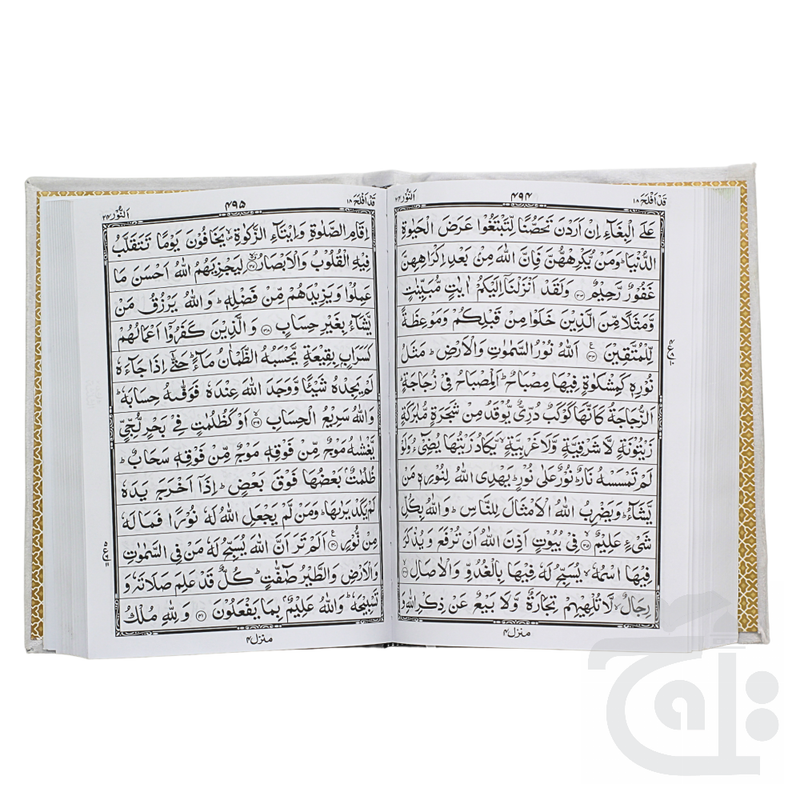 قَدْ اَفْلَحَ ١٨
۴۹۴
اَلنُّوْر ٢٤
عَلَى الْبِغَآءِ اِنْ اَرَدْنَ تَحَصُّنًا لِّتَبْتَغُوْا عَرَضَ الْحَيٰوةِ
الدُّنْيَا ؕ وَمَنْ يُّكْرِهْهُّنَّ فَاِنَّ اللّٰهَ مِنْۢ بَعْدِ اِكْرَاهِهِنَّ
غَفُوْرٌ رَّحِيْمٌ ﴿٣٣﴾ وَلَقَدْ اَنْزَلْنَاۤ اِلَيْكُمْ اٰيٰتٍ مُّبَيِّنٰتٍ
وَّمَثَلًا مِّنَ الَّذِيْنَ خَلَوْا مِنْ قَبْلِكُمْ وَمَوْعِظَةً
لِّلْمُتَّقِيْنَ ﴿٣٤﴾ اَللّٰهُ نُوْرُ السَّمٰوٰتِ وَالْاَرْضِ ؕ مَثَلُ
نُوْرِهٖ كَمِشْكٰوةٍ فِيْهَا مِصْبَاحٌ ؕ اَلْمِصْبَاحُ فِيْ زُجَاجَةٍ ؕ
اَلزُّجَاجَةُ كَاَنَّهَا كَوْكَبٌ دُرِّيٌّ يُّوْقَدُ مِنْ شَجَرَةٍ مُّبٰرَكَةٍ
زَيْتُوْنَةٍ لَّا شَرْقِيَّةٍ وَّلَا غَرْبِيَّةٍ ۙ يَّكَادُ زَيْتُهَا يُضِيْٓءُ وَلَوْ
لَمْ تَمْسَسْهُ نَارٌ ؕ نُوْرٌ عَلٰى نُوْرٍ ؕ يَهْدِى اللّٰهُ لِنُوْرِهٖ مَنْ
يَّشَآءُ ؕ وَيَضْرِبُ اللّٰهُ الْاَمْثَالَ لِلنَّاسِ ؕ وَاللّٰهُ بِكُلِّ
شَيْءٍ عَلِيْمٌ ﴿٣٥﴾ فِيْ بُيُوْتٍ اَذِنَ اللّٰهُ اَنْ تُرْفَعَ وَيُذْكَرَ
فِيْهَا اسْمُهٗ ۙ يُسَبِّحُ لَهٗ فِيْهَا بِالْغُدُوِّ وَالْاٰصَالِ ﴿٣٦﴾
رِجَالٌ ۙ لَّا تُلْهِيْهِمْ تِجَارَةٌ وَّلَا بَيْعٌ عَنْ ذِكْرِ اللّٰهِ وَ
منزل ۴
قَدْ اَفْلَحَ ١٨
۴۹۵
اَلنُّوْر ٢٤
اِقَامِ الصَّلٰوةِ وَاِيْتَآءِ الزَّكٰوةِ ۙ يَخَافُوْنَ يَوْمًا تَتَقَلَّبُ
فِيْهِ الْقُلُوْبُ وَالْاَبْصَارُ ﴿٣٧﴾ لِيَجْزِيَهُمُ اللّٰهُ اَحْسَنَ مَا
عَمِلُوْا وَيَزِيْدَهُمْ مِّنْ فَضْلِهٖ ؕ وَاللّٰهُ يَرْزُقُ مَنْ
يَّشَآءُ بِغَيْرِ حِسَابٍ ﴿٣٨﴾ وَالَّذِيْنَ كَفَرُوْۤا اَعْمَالُهُمْ
كَسَرَابٍۭ بِقِيْعَةٍ يَّحْسَبُهُ الظَّمْاٰنُ مَآءً ؕ حَتّٰۤى اِذَا جَآءَهٗ
لَمْ يَجِدْهُ شَيْـًٔا وَّوَجَدَ اللّٰهَ عِنْدَهٗ فَوَفّٰىهُ حِسَابَهٗ ؕ
وَاللّٰهُ سَرِيْعُ الْحِسَابِ ﴿٣٩﴾ اَوْ كَظُلُمٰتٍ فِيْ بَحْرٍ لُّجِّيٍّ
يَّغْشٰىهُ مَوْجٌ مِّنْ فَوْقِهٖ مَوْجٌ مِّنْ فَوْقِهٖ سَحَابٌ ؕ
ظُلُمٰتٌۢ بَعْضُهَا فَوْقَ بَعْضٍ ؕ اِذَاۤ اَخْرَجَ يَدَهٗ
لَمْ يَكَدْ يَرٰىهَا ؕ وَمَنْ لَّمْ يَجْعَلِ اللّٰهُ لَهٗ نُوْرًا فَمَا لَهٗ
مِنْ نُّوْرٍ ﴿٤٠﴾ اَلَمْ تَرَ اَنَّ اللّٰهَ يُسَبِّحُ لَهٗ مَنْ فِى السَّمٰوٰتِ
وَالْاَرْضِ وَالطَّيْرُ صٰٓفّٰتٍ ؕ كُلٌّ قَدْ عَلِمَ صَلَاتَهٗ وَ
تَسْبِيْحَهٗ ؕ وَاللّٰهُ عَلِيْمٌۢ بِمَا يَفْعَلُوْنَ ﴿٤١﴾ وَلِلّٰهِ مُلْكُ
منزل ۴